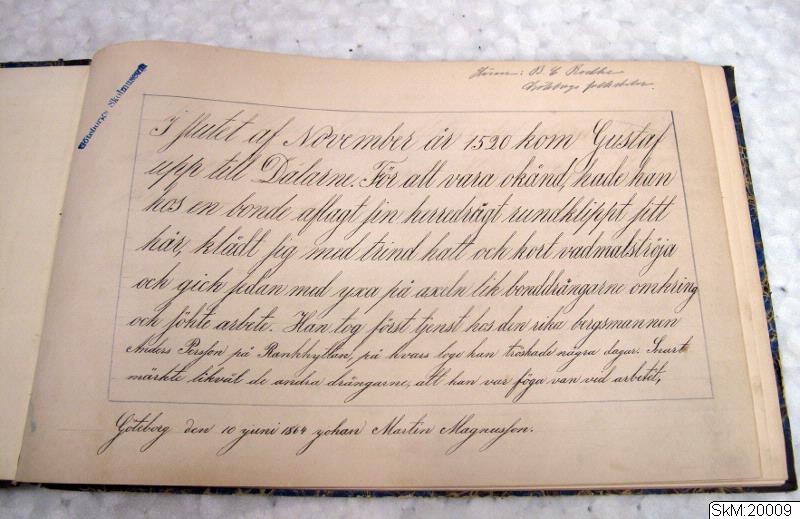 Göteborgs Skolmuseum
B. C. Rodhe
Göteborgs folkskolor.
I slutet af November år 1520 kom Gustaf
upp till Dalarne. För att vara okänd, hade han
hos en bonde aflagt sin herredrägt rundklippt sitt
hår, klädt sig med trind hatt och kort vadmalströja
och gick sedan med yxa på axeln lik bonddrängarne omkring
och sökte arbete. Han tog först tjenst hos den rika bergsmannen
Anders Persson på Rankhyttan, på hvars loge han tröskade några dagar. Snart
märkte likväl de andra drängarne, att han var föga van vid arbetet,
Göteborg den 10 juni 1864 Johan Martin Magnusson.
SkM:20009